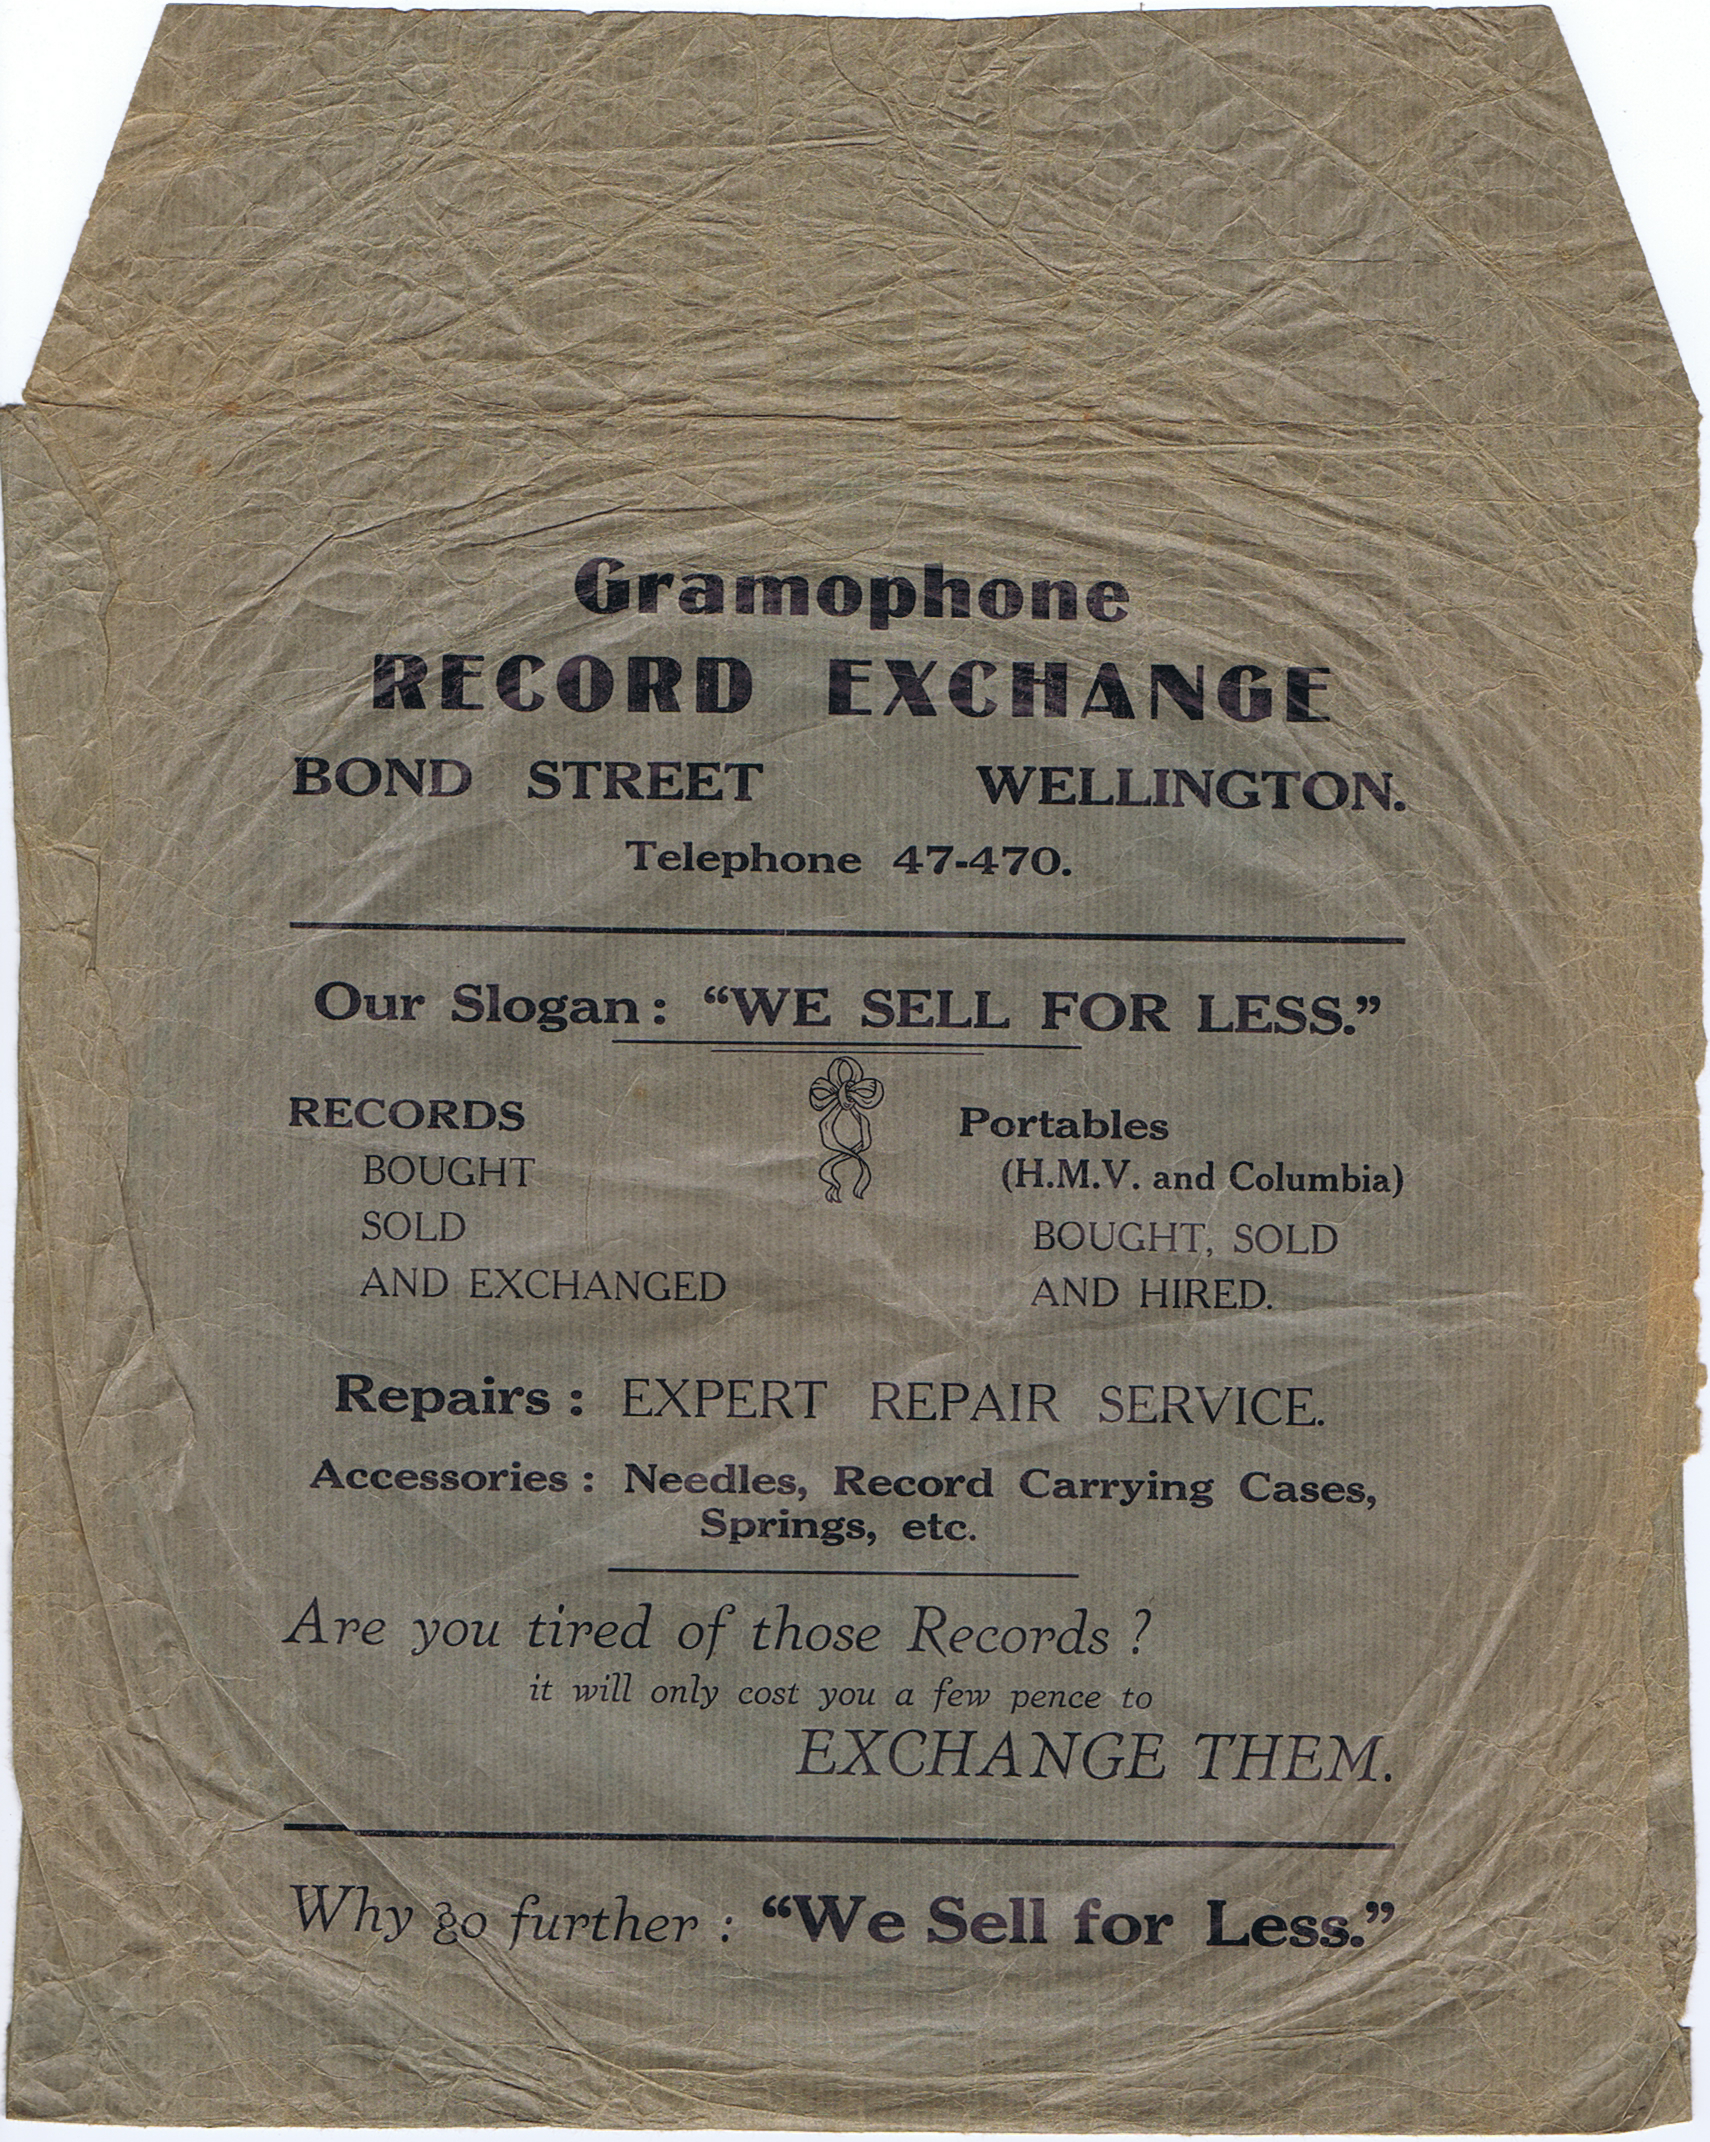 Gramophone
RECORD EXCHANGE
BOND STREET WELLINGTON.
Telephone 47-470.
Our Slogan: "WE SELL FOR LESS."
RECORDS
BOUGHT
SOLD
AND EXCHANGED
Portables
(H.M.V. and Columbia)
BOUGHT, SOLD
AND HIRED.
Repairs: EXPERT REPAIR SERVICE.
Accessories: Needles, Record Carrying Cases,
Springs, etc.
Are you tired of those Records?
it will only cost you a few pence to
EXCHANGE THEM.
Why go further: "We Sell for Less."